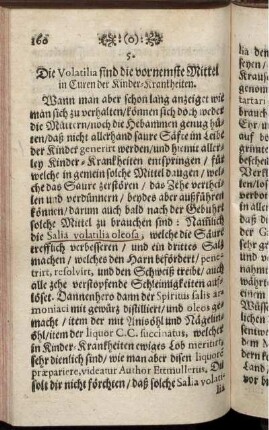 160 (o)
5.
Die Volatilia sind die vornemste Mittel
in Curen der Kinder-Kranckheiten.
Wann man aber schon lang anzeiget wie
man sich zu verhalten/können sich doch weder
die Müttern/noch die Hebammen genug hü-
ten/daß nicht allerhand saure Säfte im Leibe
der Kinder generirt werden/und hiemit aller-
ley Kinder-Kranckheiten entspringen/ für
welche in gemein solche Mittel daugen/ wel-
che das Saure zerstören/ das Zehe verthei-
len und verdünnern/ beydes aber außführen
können/darum auch bald nach der Geburt
solche Mittel zu brauchen sind: Namlich
die Salia volatilia oleosa, welche die Säure
trefflich verbesseren/ und ein drittes Saltz
machen/ welches den Harn befördert/ pene-
trirt, resolvirt, und den Schweiß treibt/ auch
alle zehe verstopfende Schleimigkeiten auf-
löset. Dannenhero dann der Spiritus salis ar-
moniaci mit gewürtz distillirt/ und oleos ge-
macht/ item der mit Anisöhl und Nägelin-
öhl/item der liquor C.C. succinatus, welcher
in Kinder-Kranckheiten ewiges Lob meritirt/
sehr dienlich sind/ wie man aber disen liquore
præpariere, videatur Author Ettmullerus. Du
solt dir nicht förchten/ daß solche Salia volati-
lia